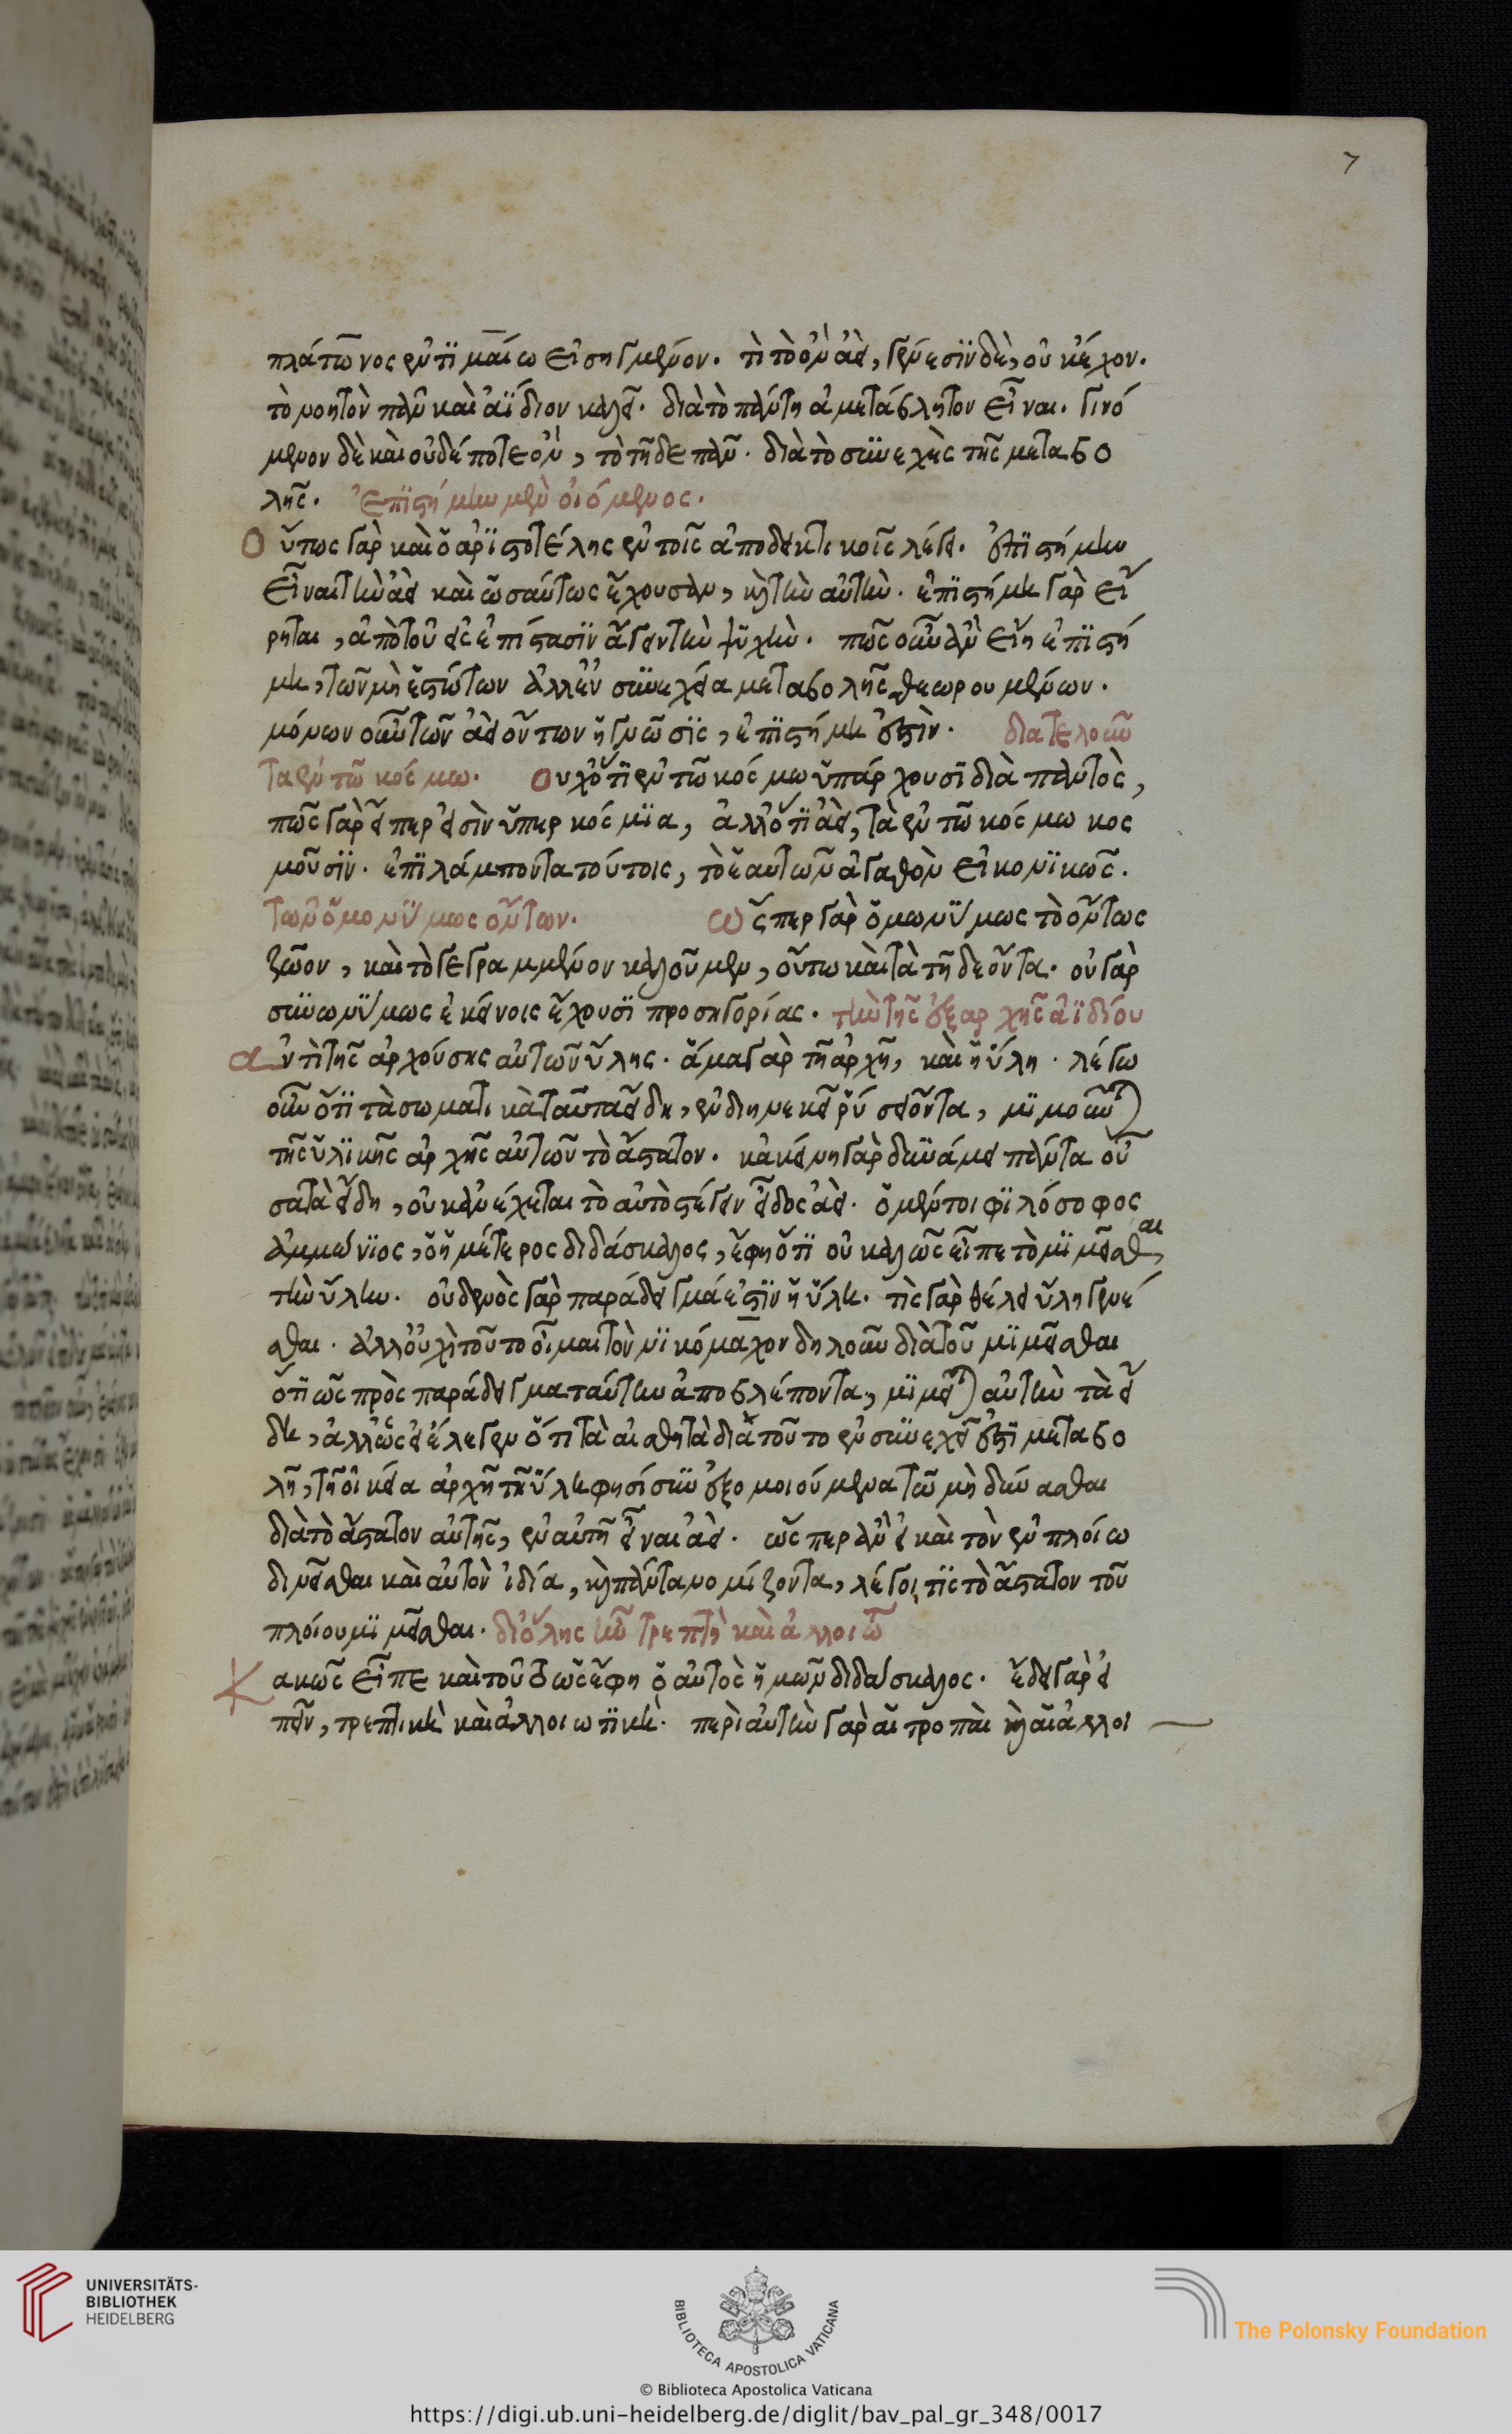 7
πλάτωνος ἐν τιμαίω εἰρημένον. τί τὸ ὂν ἀεὶ, γένεσιν δὲ, οὐκ ἔχον.
τὸ νοητὸν πᾶν καὶ ἀΐδιον καλεῖ. διὰ τὸ πάντη ἀμετάβλητον εἶναι. γινό
μενον δὲ καὶ οὐδέποτε ὂν, τὸ τῇδε πᾶν. διὰ τὸ συνεχὲς τῆς μεταβο
λῆς. Ἐπιστήμην μὲν οἰόμενος.
Οὕτως γὰρ καὶ ὁ ἀριστοτέλης ἐν τοῖς ἀποδεικτικοῖς λέγει. ἐπιστήμην
εἶναι τὴν ἀεὶ καὶ ὡσαύτως ἔχουσαν, κατ' αὐτὴν. ἐπιστήμη γὰρ εἴ
ρηται, ἀπὸ τοῦ εἰς ἐπίστασιν ἄγειν τὴν ψυχὴν. πῶς οὖν ἂν εἴη ἐπιστή
μη, τῶν μὴ ἑστώτων ἀλλ' ἐν συνεχεία μεταβολῆς θεωρουμένων.
μόνων οὖν τῶν ἀεὶ ὄντων ἡ γνῶσις, ἐπιστήμη ἐστὶν. διατελοῦν
τα ἐν τῶ κόσμω. Οὐχ ὅτι ἐν τῶ κόσμω ὑπάρχουσι διὰ παντὸς,
πῶς γὰρ εἴπερ εἰσὶν ὑπερκόσμια, ἀλλ' ὅτι ἀεὶ, τὰ ἐν τῶ κόσμω κοσ
μοῦσιν. ἐπιλάμποντα τούτοις, τὸ ἑαυτῶν ἀγαθὸν εἰκονικῶς.
τῶν ὁμονύμως ὄντων. Ὥσπερ γὰρ ὁμωνύμως τὸ ὄντως
ζῶον, καὶ τὸ γεγραμμένον καλοῦμεν, οὕτω καὶ τὰ τῇδε ὄντα. οὐ γὰρ
συνωνύμως ἐκείνοις ἔχουσι προσηγορίας. τὴν τῆς ἐξαρχῆς ἀϊδίου
Ἀντὶ τῆς ἀρχούσης αὐτῶν ὕλης. ἅμα γὰρ τῇ ἀρχῇ, καὶ ἡ ὕλη. λέγω
οὖν ὅτι τὰ σωματικὰ ταῦτα εἴδη, ἐν διηνεκεῖ ῥύσει ὄντα, μιμοῦνται
τῆς ὑλικῆς ἀρχῆς αὐτῶν τὸ ἄστατον. κἀκείνη γὰρ δυνάμει πάντα οὖ
σα τὰ εἴδη, οὐκ ἀνέχεται τὸ αὐτὸ στέγειν εἶδος ἀεὶ. ὁ μέντοι φιλόσοφος
Ἀμμώνιος, ὁ ἡμέτερος διδάσκαλος, ἔφη ὅτι οὐ καλῶς εἶπε τὸ μιμεῖσθαι
τὴν ὕλην. οὐδενὸς γὰρ παράδειγμά ἐστιν ἡ ὕλη. τίς γὰρ θέλει ὕλη γενέ
σθαι. ἀλλ' οὐχὶ τοῦτο οἶμαι τὸν νικόμαχον δηλοῦν διὰ τοῦ μιμεῖσθαι
ὅτι ὡς πρὸς παράδειγμα ταύτην ἀποβλέποντα, μιμεῖται αὐτὴν τὰ εἴ
δη, ἀλλ' ὡς εἰ ἔλεγεν ὅτι τὰ αἰσθητὰ διὰ τοῦτο ἐν συνεχεῖ ἐστι μεταβο
λῇ, τῇ οἰκεία ἀρχῇ τῇ ὕλη φησί συνεξομοιούμενα τῶ μὴ δύνασθαι
διὰ τὸ ἄστατον αὐτῆς, ἐν αὐτῇ εἶναι ἀεὶ. ὥσπερ ἂν εἰ καὶ τὸν ἐν πλοίω
δινεῖσθαι καὶ αὐτὸν ἰδία, καὶ πάντα νομίζοντα, λέγοι τις τὸ ἄστατον τοῦ
πλοίου μιμεῖσθαι. δι' ὅλης ἦν τρεπτὴ καὶ ἀλλοιω
Κακῶς εἶπε καὶ τοῦτο ὡς ἔφη ὁ αὐτὸς ἡμῶν διδάσκαλος. ἔδει γὰρ εἰ
πεῖν, τρεπτικὴ καὶ ἀλλοιωτικὴ. περὶ αὐτὴν γὰρ αἱ τροπαὶ καὶ αἱ ἀλλοι
UNIVERSITÄTS-
BIBLIOTHEK
HEIDELBERG
BIBLIOTECA APOSTOLICA VATICANA
The Polonsky Foundation
© Biblioteca Apostolica Vaticana
https://digi.ub.uni-heidelberg.de/diglit/bav_pal_gr_348/0017